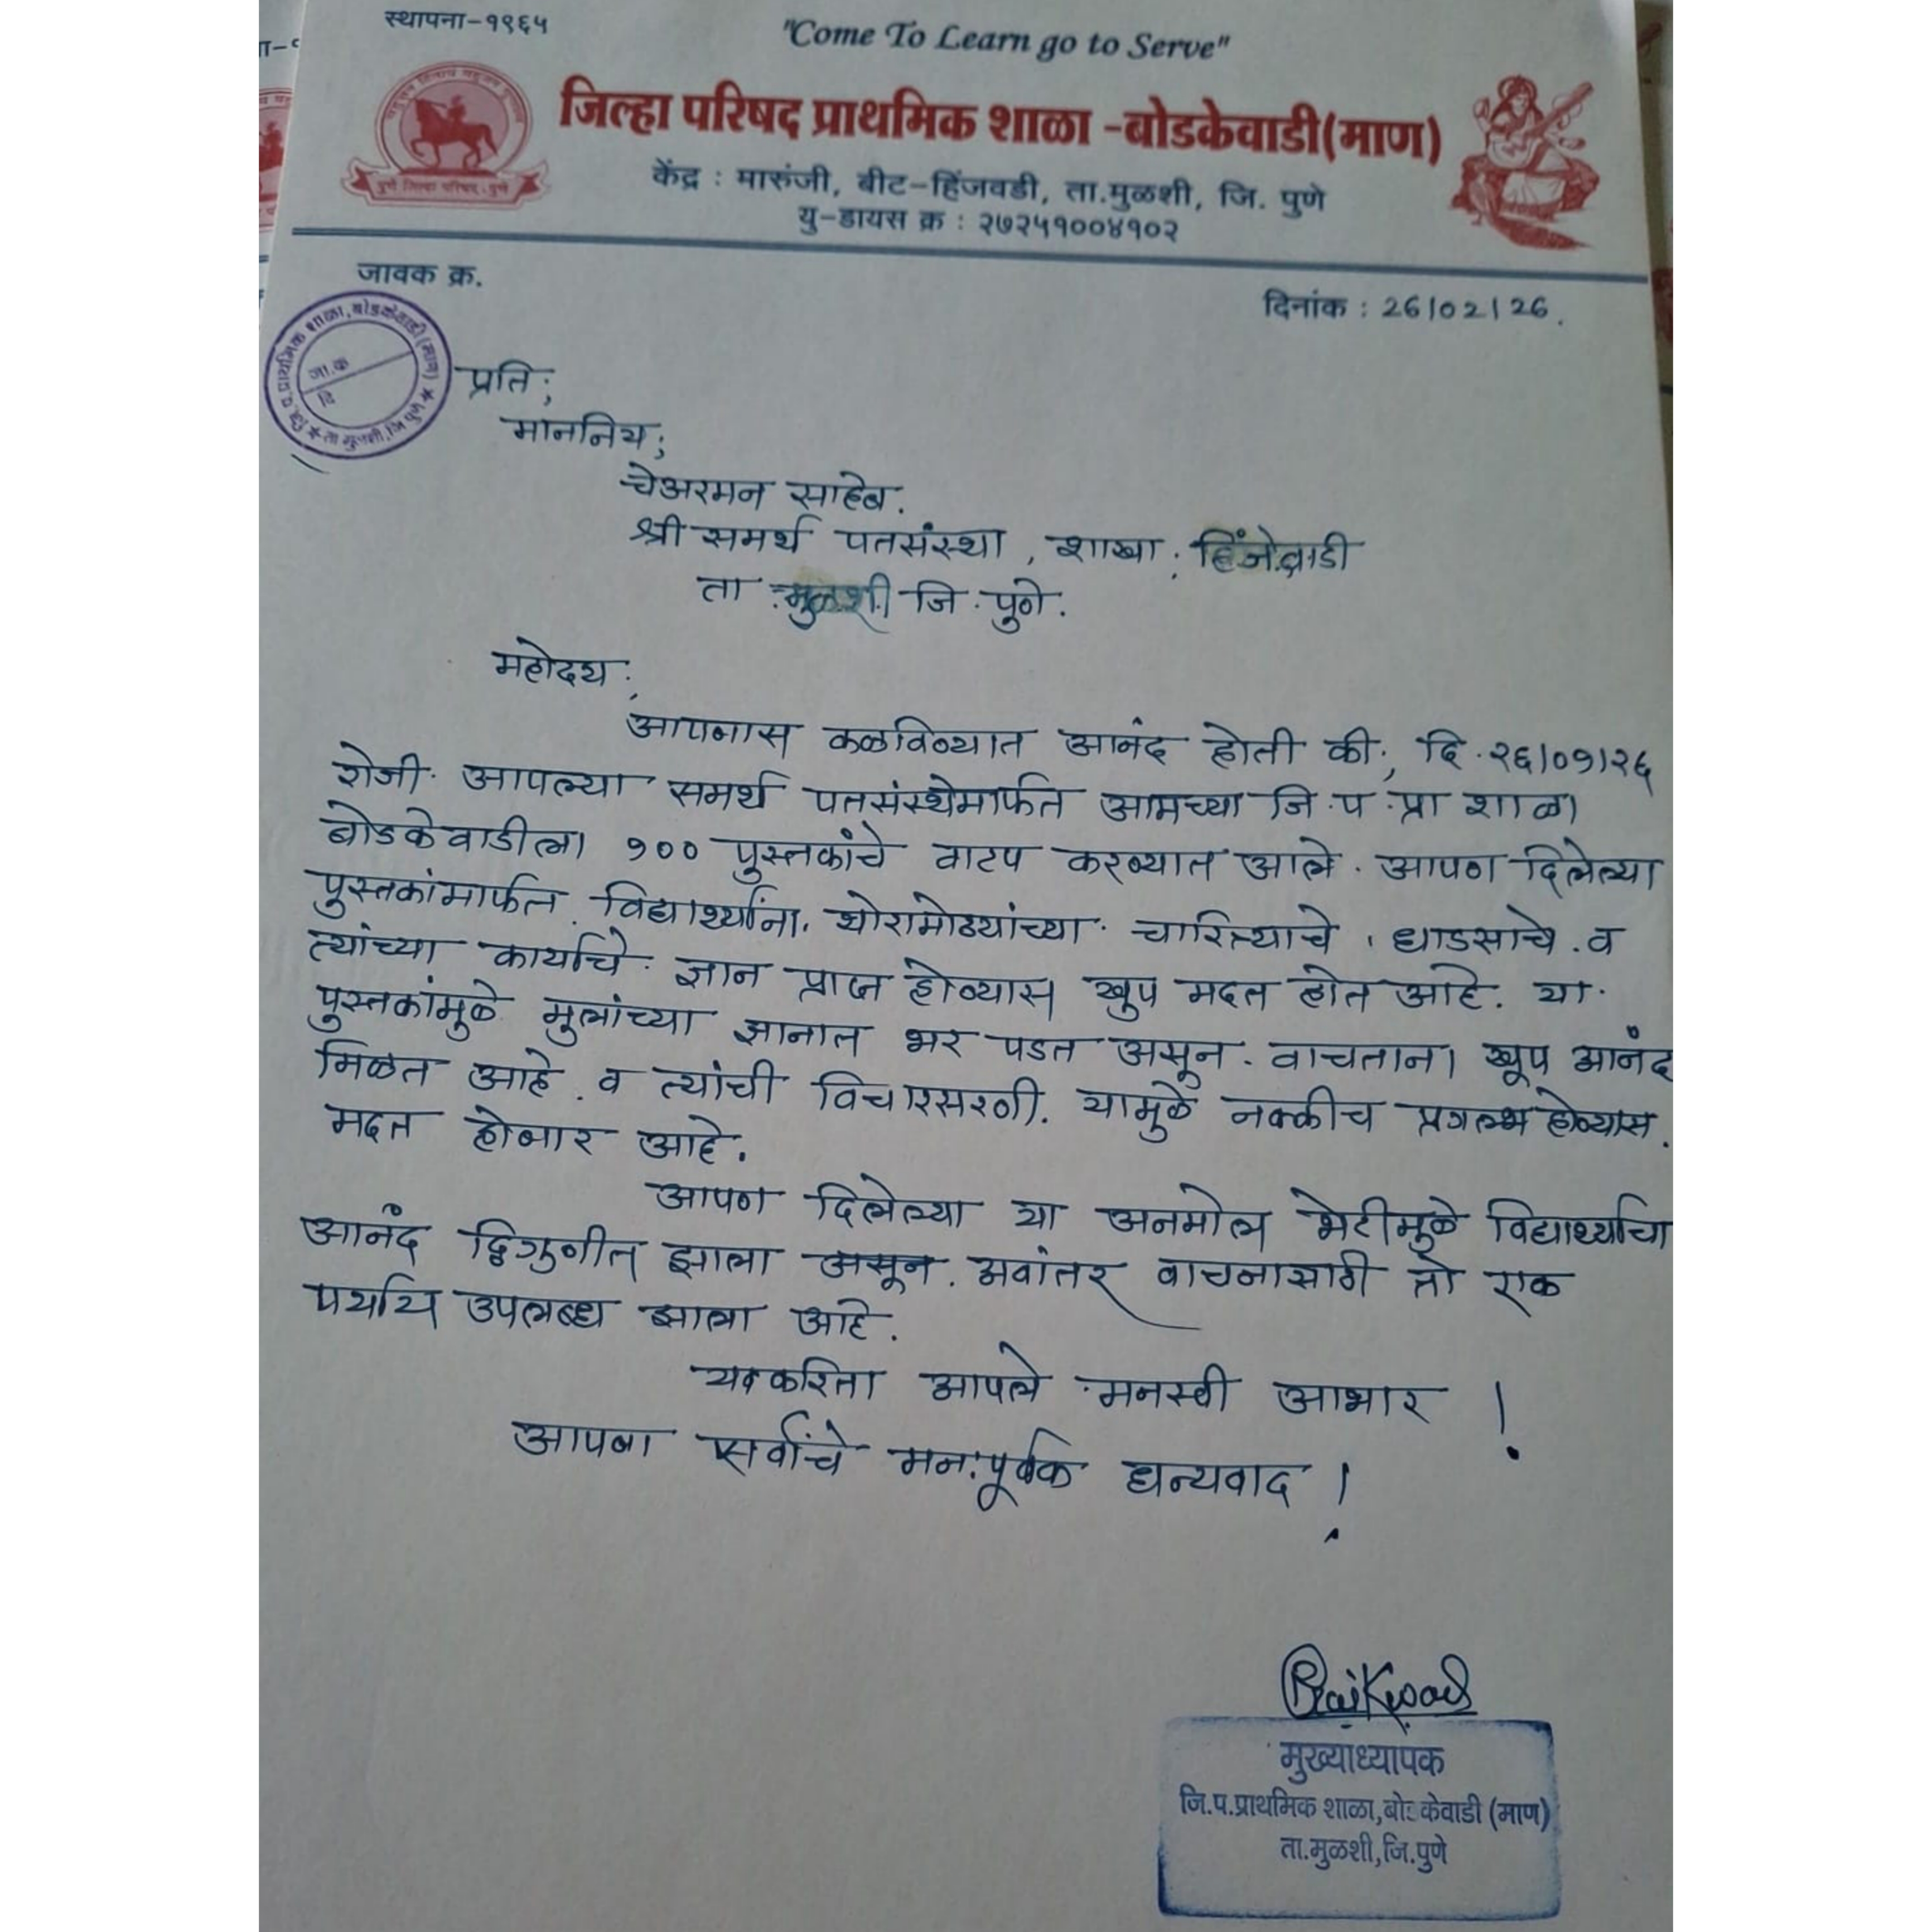 स्थापना-१९६५
"Come To Learn go to Serve"
जिल्हा परिषद प्राथमिक शाळा -बोडकेवाडी(माण)
केंद्र : मारुंजी, बीट-हिंजवडी, ता.मुळशी, जि. पुणे
यु-डायस क्र : २७२५१००४१०२
पुणे जिल्हा परिषद-पुणे
जावक क्र.
दिनांक : 26/02/26.
जि.प.प्राथमिक शाळा,बोडकेवाडी(माण) ★ ता मुळशी,जि पुणे ★
जा.क
दि
प्रति;
माननिय;
चेअरमन साहेब.
श्री समर्थ पतसंस्था, शाखा: हिंजेवाडी
ता.मुळशी जि.पुणे.
महोदय;
आपणास कळविण्यात आनंद होतो की;, दि.२६/०१/२६
रोजी आपल्या समर्थ पतसंस्थेमार्फत आमच्या जि.प.प्रा शाळा
बोडकेवाडीला १०० पुस्तकांचे वाटप करण्यात आले. आपण दिलेल्या
पुस्तकांमार्फत. विद्यार्थ्यांना, थोरामोठ्यांच्या चारित्र्याचे, धाडसाचे.व
त्यांच्या कार्याचे ज्ञान प्राप्त होण्यास खुप मदत होत आहे. या
पुस्तकांमुळे मुलांच्या ज्ञानात भर पडत असून. वाचताना खूप आनंद
मिळत आहे. व त्यांची विचारसरणी. यामुळे नक्कीच प्रगल्भ होण्यास.
मदत होणार आहे.
आपण दिलेल्या या अनमोल भेटीमुळे विद्यार्थ्यांचा
आनंद द्विगुणीत झाला असून. अवांतर वाचनासाठी तो एक
पर्याय उपलब्ध झाला आहे.
याकरिता आपले मनस्वी आभार !
आपणा सर्वांचे मन:पूर्वक धन्यवाद !
मुख्याध्यापक
जि.प.प्राथमिक शाळा,बोडकेवाडी (माण)
ता.मुळशी,जि.पुणे